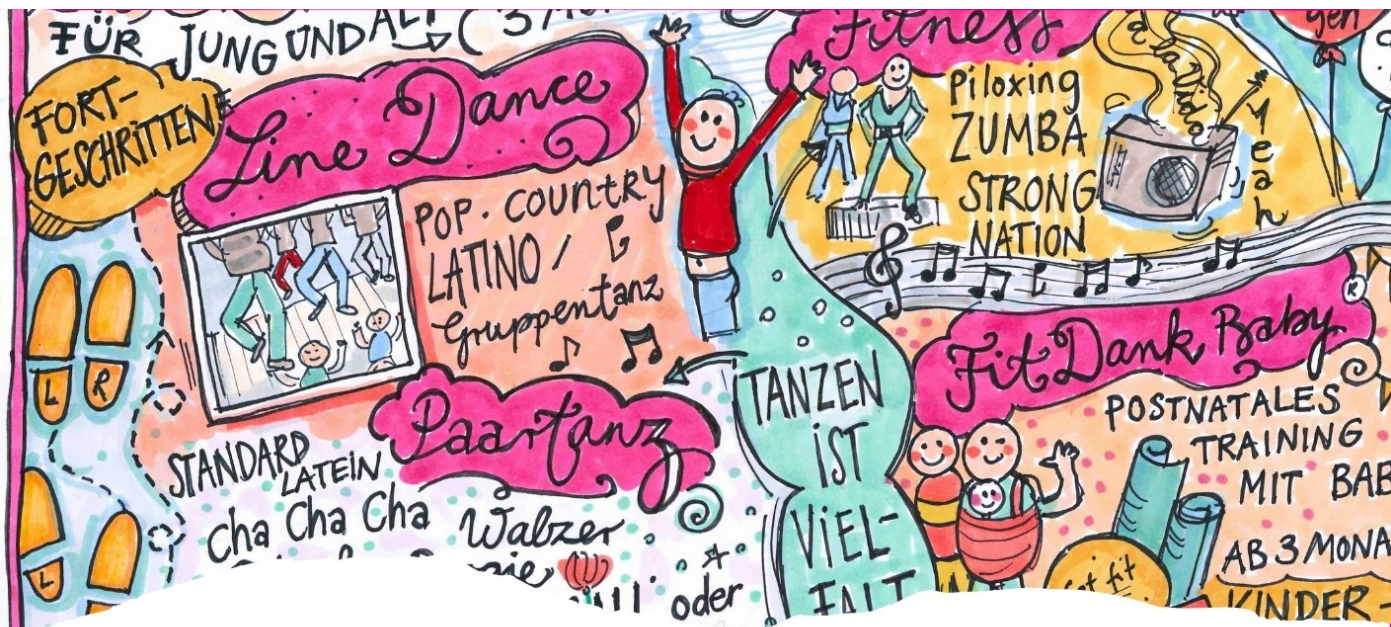 FÜR
JUNG UND ALT
FORT-
GESCHRITTENE
Line Dance
POP. COUNTRY
LATINO /
Gruppentanz
L R
L
Paartanz
STANDARD
LATEIN
Cha Cha Cha
Walzer
oder
TANZEN
IST
VIEL-
FALT
Fitness
Piloxing
ZUMBA
STRONG
NATION
Yeah
gen
Fit Dank Baby
POSTNATALES
TRAINING
MIT BAB
AB 3 MONA
fit
KINDER-